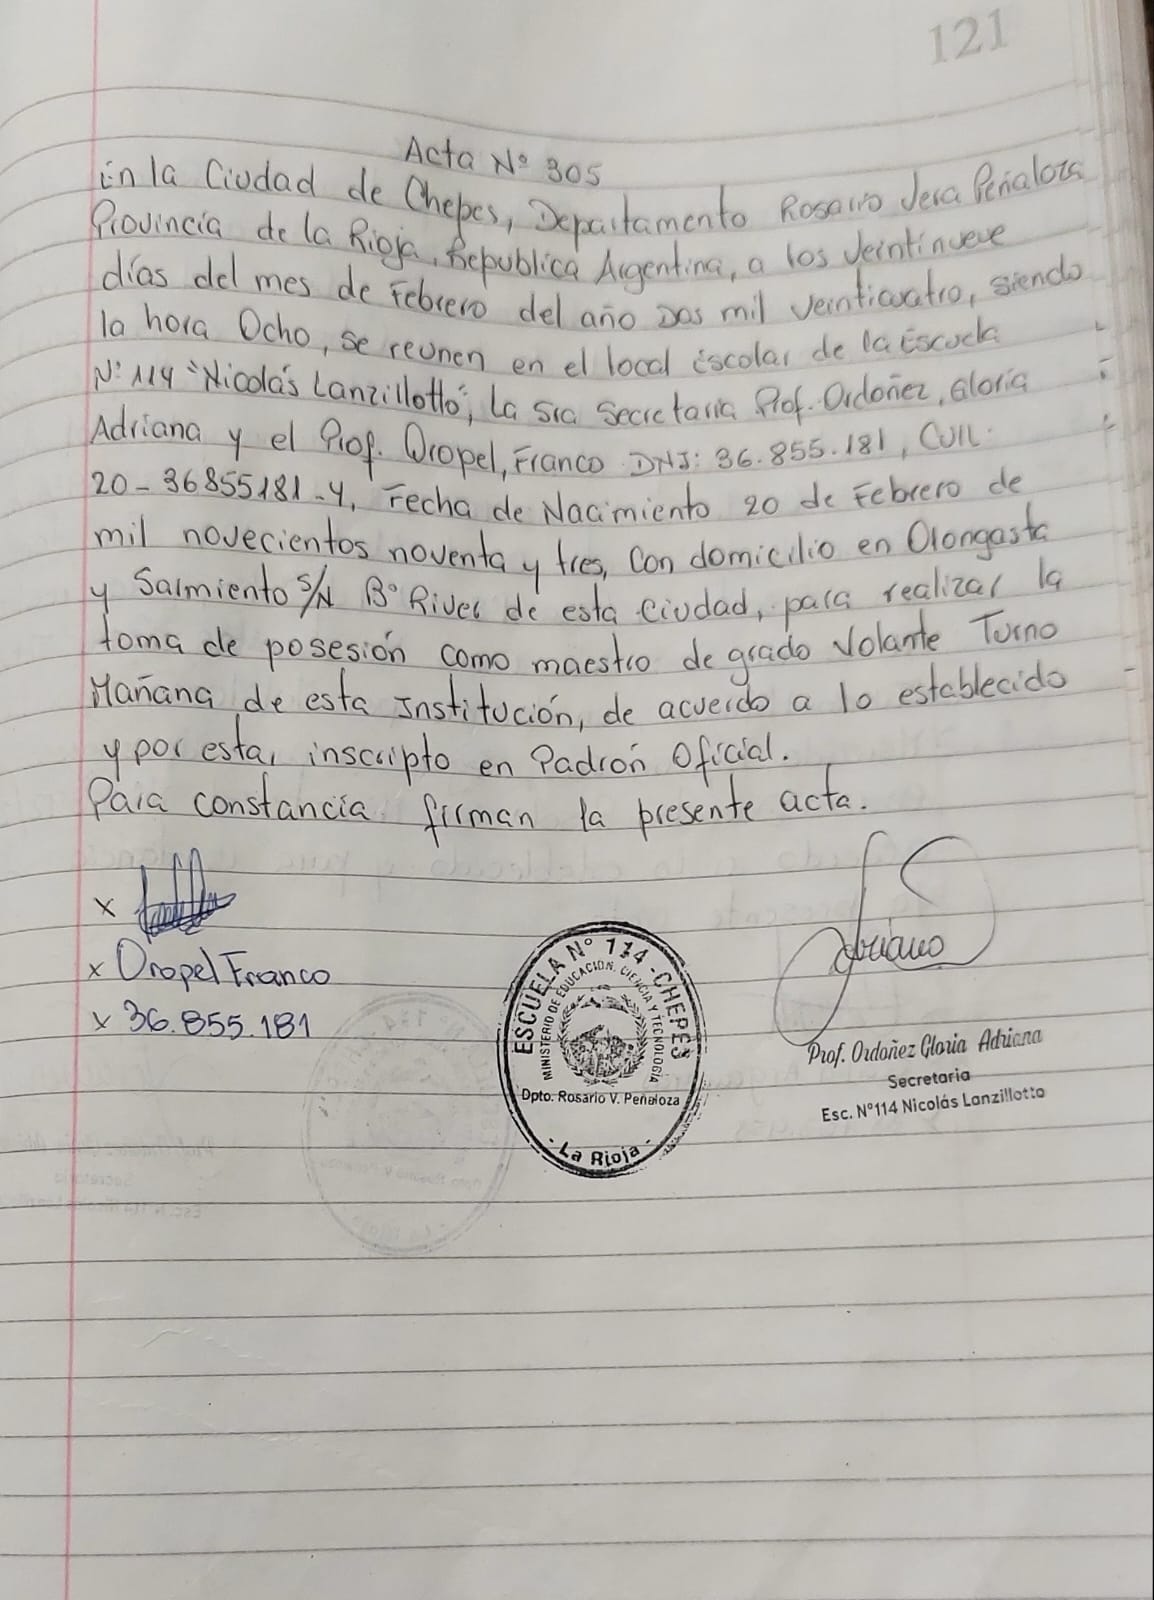 121
Acta Nº 305
En la Ciudad de Chepes, Departamento Rosario Vera Peñaloza
Provincia de la Rioja, Republica Argentina, a los Veintinueve
días del mes de Febrero del año Dos mil Veinticuatro, siendo
la hora Ocho, se reunen en el local Escolar de la Escuela
Nº 114 "Nicolás Lanzillotto", La Sra Secretaria Prof. Ordoñez, Gloria
Adriana y el Prof. Oropel, Franco DNI: 36.855.181, CUIL:
20-36855181-4, Fecha de Nacimiento 20 de Febrero de
mil novecientos noventa y tres, Con domicilio en Olongasta
y Sarmiento S/N Bº River de esta Ciudad, para realizar la
toma de posesión como maestro de grado Volante Turno
Mañana de esta Institución, de acuerdo a lo establecido
y por estar inscripto en Padrón Oficial.
Para constancia firman la presente acta.
x
x Oropel Franco
x 36.855.181
ESCUELA Nº 114 - CHEPES
MINISTERIO DE EDUCACION, CIENCIA Y TECNOLOGIA
Dpto. Rosario V. Peñaloza
- La Rioja -
Prof. Ordoñez Gloria Adriana
Secretaria
Esc. Nº114 Nicolás Lanzillotto